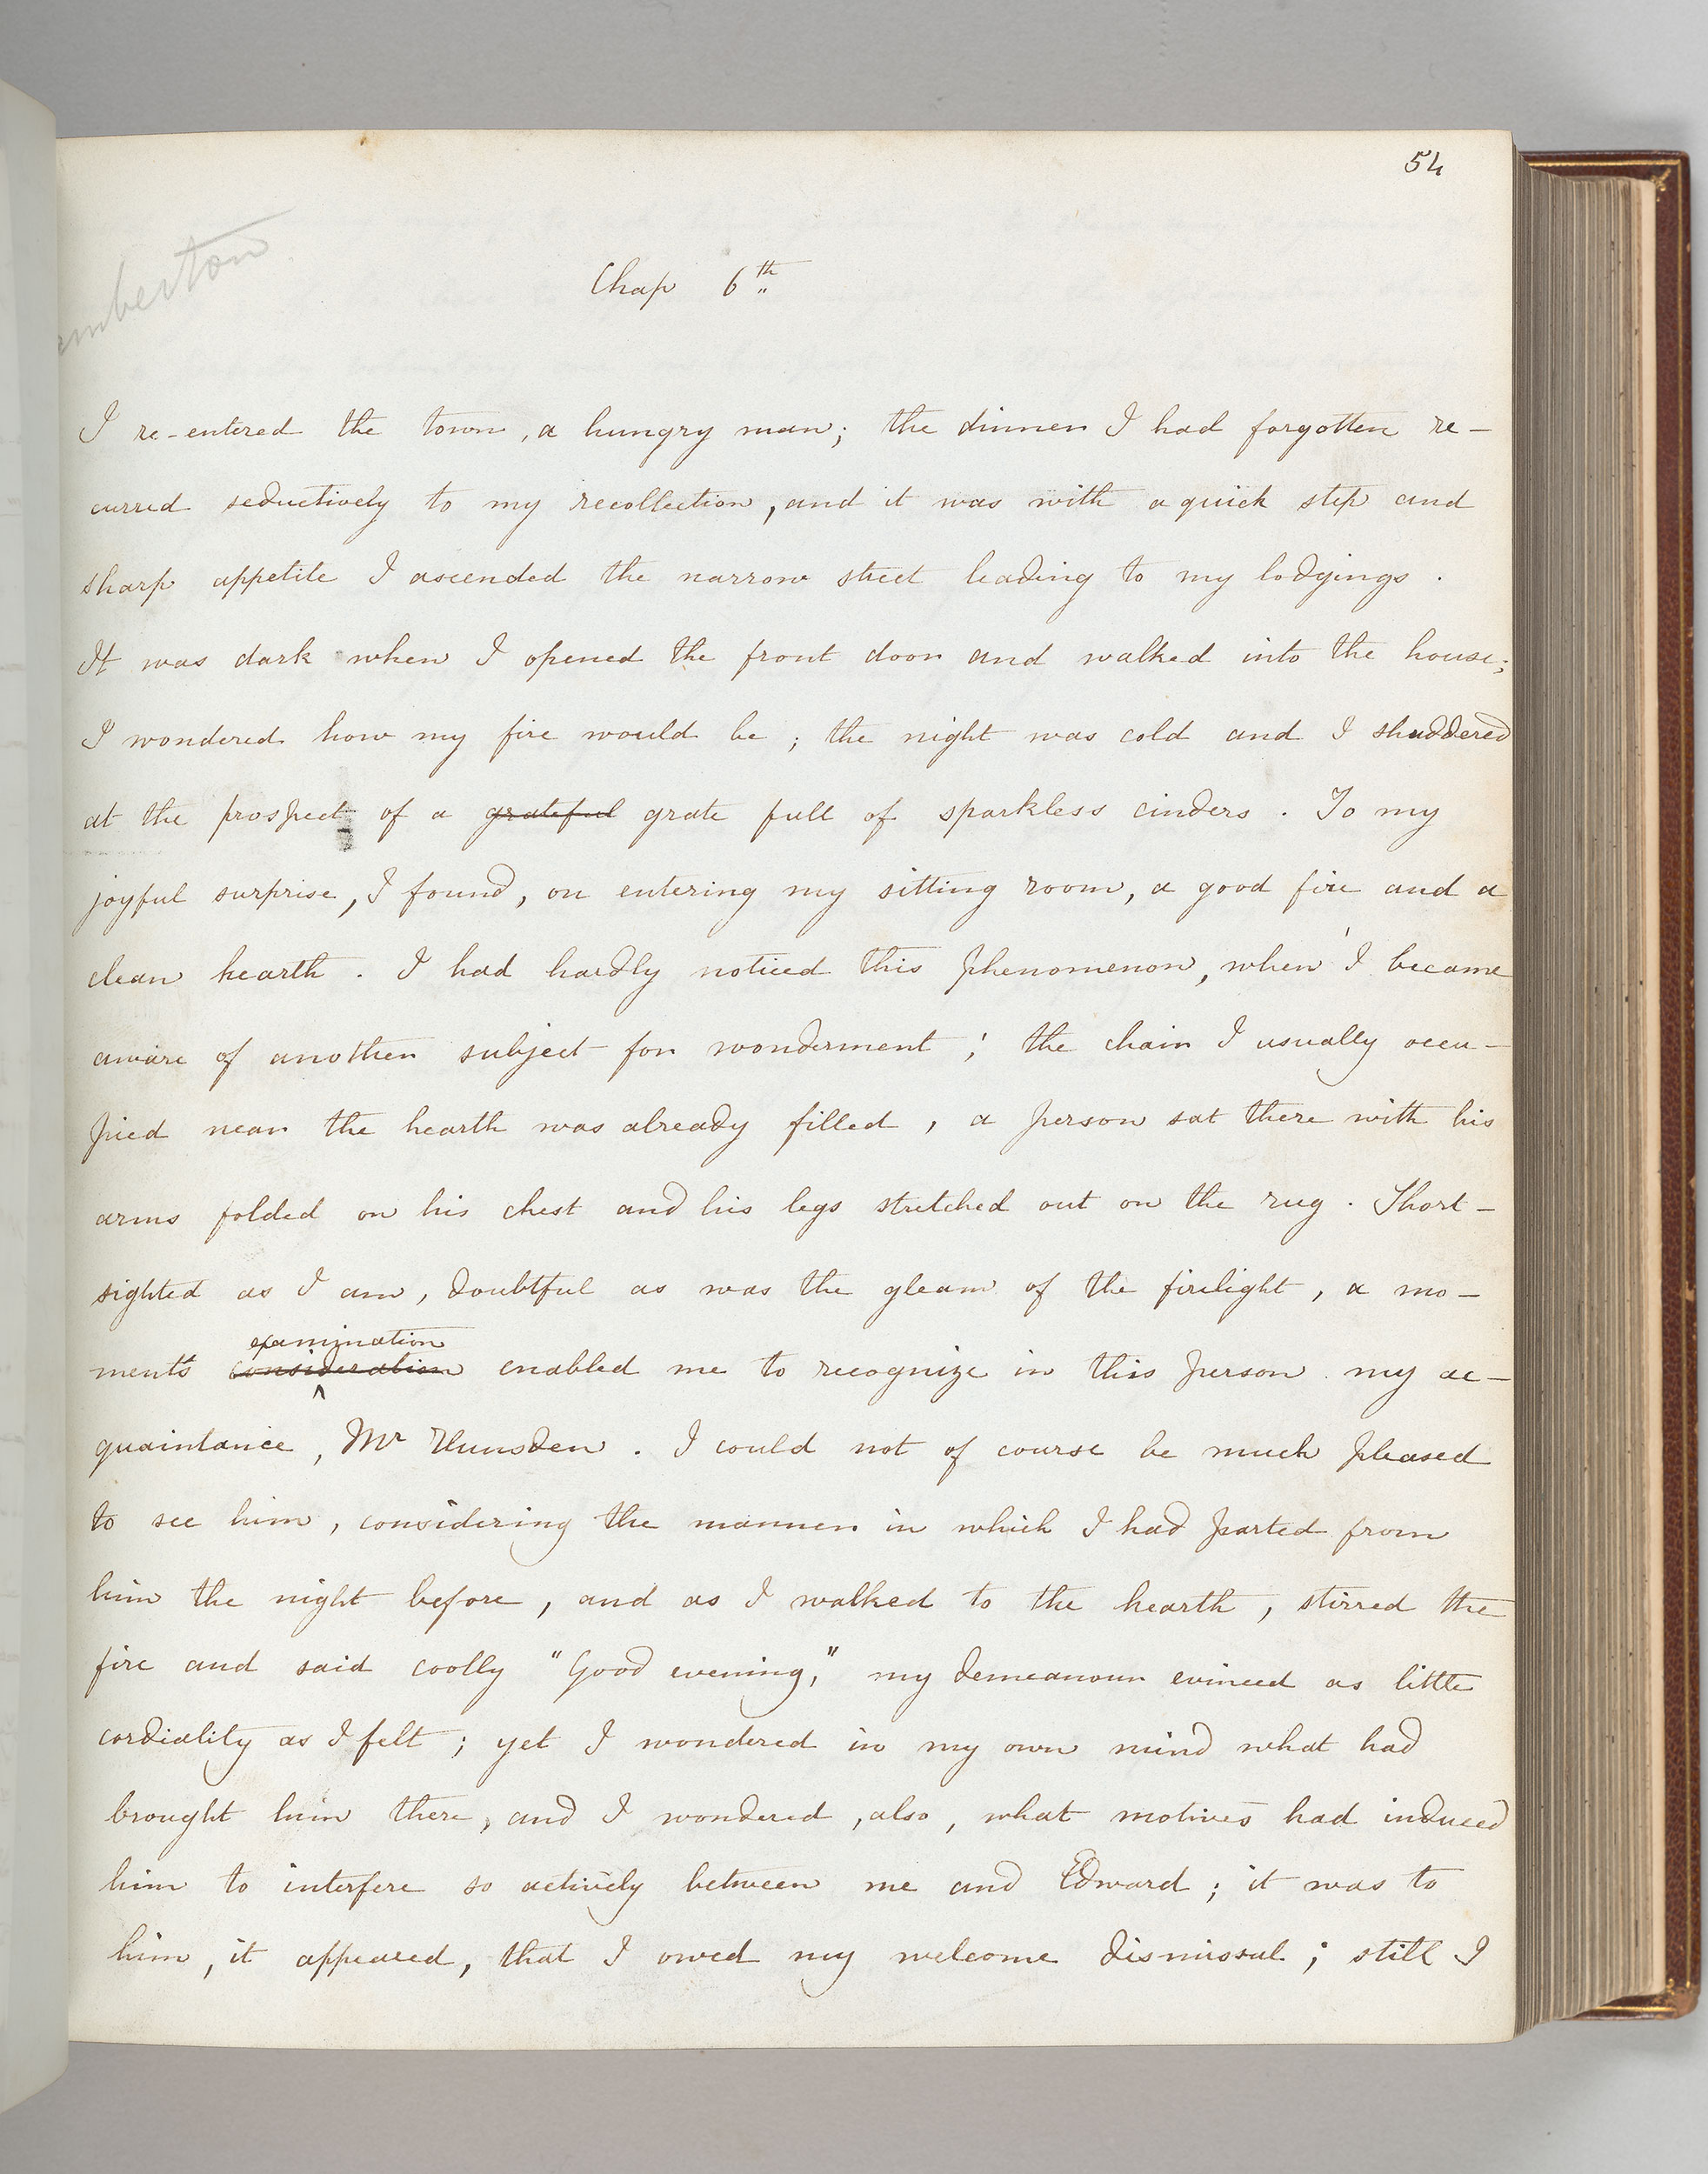 54
emberton
Chap 6th
I re-entered the town, a hungry man; the dinner I had forgotten re-
curred seductively to my recollection, and it was with a quick step and
sharp appetite I ascended the narrow street leading to my lodgings.
It was dark when I opened the front door and walked into the house;
I wondered how my fire would be; the night was cold and I shuddered
at the prospect of a grateful grate full of sparkless cinders. To my
joyful surprise, I found, on entering my sitting room, a good fire and a
clean hearth. I had hardly noticed this phenomenon, when I became
aware of another subject for wonderment; the chair I usually occu-
pied near the hearth was already filled, a person sat there with his
arms folded on his chest and his legs stretched out on the rug. Short-
sighted as I am, doubtful as was the gleam of the firelight, a mo-
examination
ment's consideration enabled me to recognize in this person my ac-
quaintance, Mr Hunsden. I could not of course be much pleased
to see him, considering the manner in which I had parted from
him the night before, and as I walked to the hearth, stirred the
fire and said coolly "Good evening," my demeanour evinced as little
cordiality as I felt; yet I wondered in my own mind what had
brought him there, and I wondered, also, what motives had induced
him to interfere so actively between me and Edward; it was to
him, it appeared, that I owed my welcome dismissal; still I